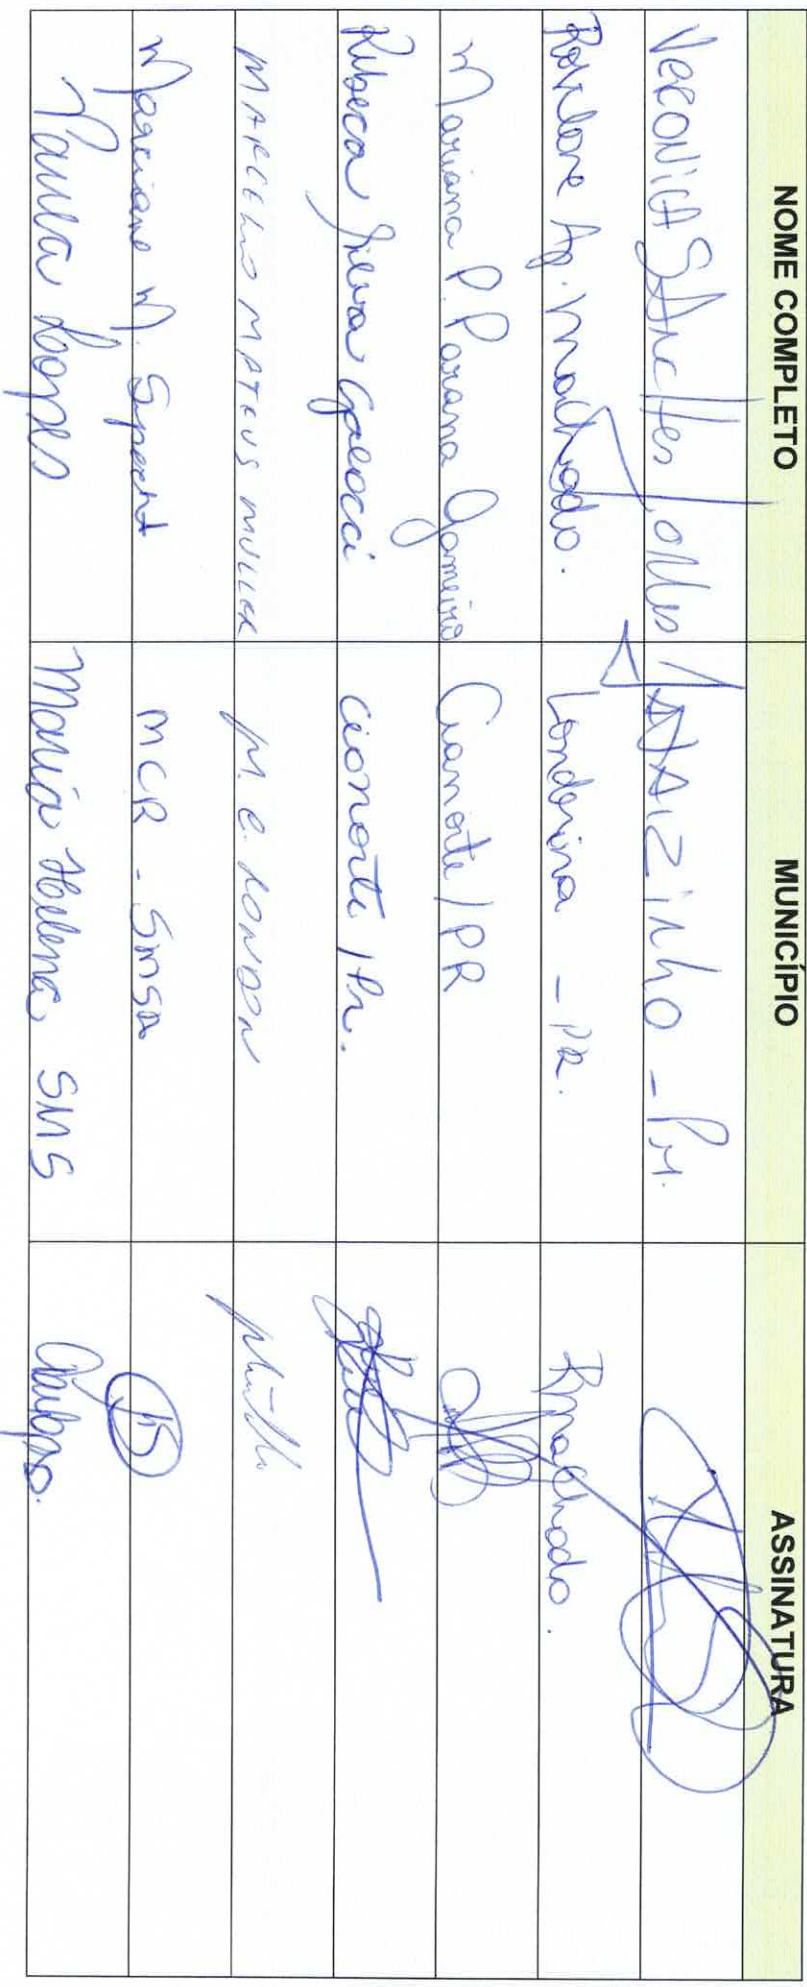 NOME COMPLETO MUNICÍPIO ASSINATURA
VERONICA SANCHES Torres JATAIZINHO - PR.
Ap. Machado. Londrina - PR. RMachado.
Mariana P. Parana Gameiro Cianorte/PR
Rebeca Silva Cianorte/Pr.
MARCELO MATEUS MULLER M. C. RONDON
Marciane M. Specht MCR - SMSA
Paula Lopes Maria Helena SMS